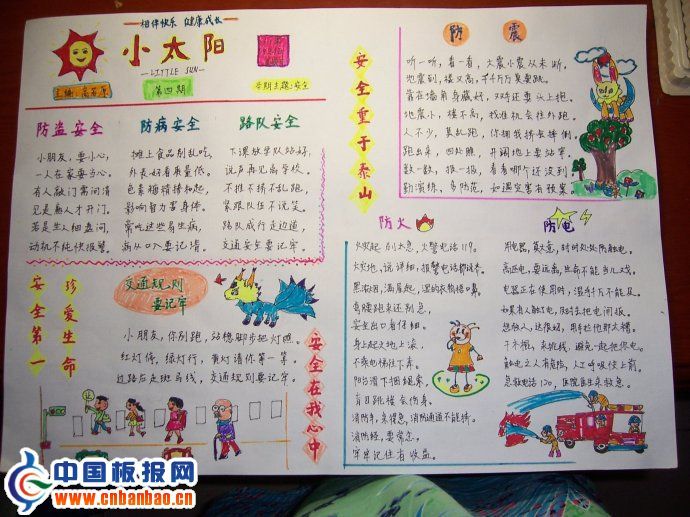 相伴快乐 健康成长
小太阳
LITTLE SUN
第四期
本期主题:安全
防盗安全
小朋友,要小心,
一人在家要当心。
有人敲门需问清
见是熟人才开门。
若是生人细盘问,
动机不纯快报警。
防病安全
摊上食品别乱吃,
外表好看质量低。
色素糖精搀和起,
影响智力害身体。
常吃这些易生病,
病从口入要记清。
路队安全
下课放学队站好,
说声再见离学校。
不推不挤不乱跑,
紧跟队伍不说笑。
路队成行走边道,
交通安全要记牢。
安全第一
珍爱生命
交通规则
要记牢
小朋友,你别跑,站稳脚步把灯照。
红灯停,绿灯行,黄灯请你等一等。
过路后走斑马线,交通规则要记牢。
安全在我心中
安全重于泰山
防震
听一听,看一看,大震小震从未断,
地震到,楼又高,千万千万莫要跳。
靠在墙角身藏好,双手还要头上抱。
地震小,楼不高,找准机会往外跑。
人不少,莫乱跑,你拥我挤会摔倒。
跑出来,四处瞧,开阔地上要站牢
数一数,报一报,看看哪个还没到
勤演练,多防范,如遇灾害有预案。
防火
火灾起,别心急,火警电话119。
火灾地,说详细,报警电话都该来。
黑浓烟,满屋起,湿的衣物捂口鼻。
弯腰跑来还别急,
安全出口看仔细。
身上起火地上滚,
不乘电梯往下奔。
阳台滑下捆绳索,
盲目跳楼会伤身。
消防车,来得急,消防通道不能挤。
消防经,要常念,
牢牢记住有收益。
防电
用电器,莫大意,时时处处防触电。
高压电,要远离,生命不能当儿戏。
电器正在使用时,湿手千万不能及。
如果有人触了电,及时去把电闸扳。
触电之人有危险,人工呼吸使上前。
急救电话120,医院医生来救急。
中国板报网
www.cnbanbao.cn